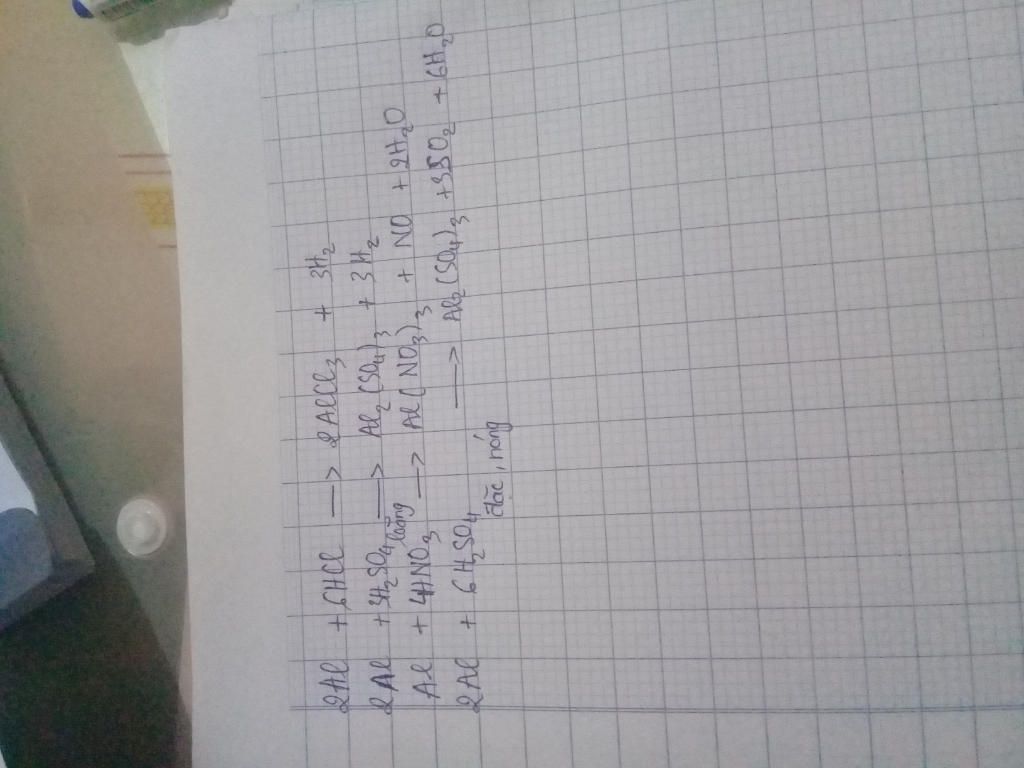 2Al + 6HCl —> 2AlCl₃ + 3H₂
2Al + 3H₂SO₄ loãng —> Al₂(SO₄)₃ + 3H₂
Al + 4HNO₃ —> Al(NO₃)₃ + NO + 2H₂O
2Al + 6H₂SO₄ —> Al₂(SO₄)₃ + 3SO₂ + 6H₂O
đặc, nóng